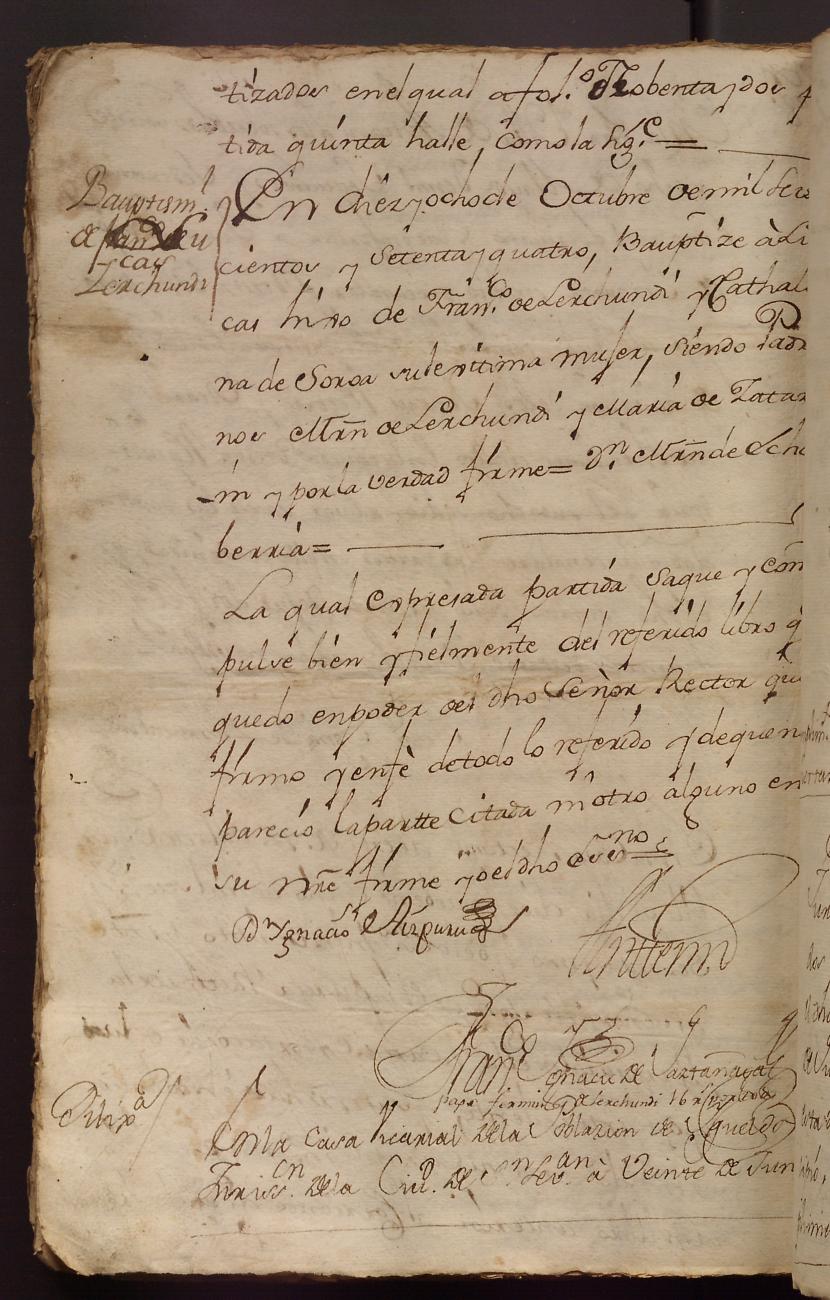 tizados en el qual a fol.º Nobenta y dos
tida quinta halle, como la sig.e =
Bauptism.l
de Lu
cas
Lerchundi
En diez y ocho de Octubre de mil seis
cientos y Setenta y quatro, Bauptize à Lu
cas hixo de Fran.co de Lerchundi y Cathal
na de Soroa su lexitima muxer, siendo Padr
nos Mrn de Lerchundi y Maria de Zatar
in y por la verdad firme = Dn. Mrn de Eche
berria =
La qual expresada partida saque y com
pulse bien y fielmente del referido libro q̃
quedo en poder del dho Señor Rector qu
firmo y en fè de todo lo referido y de que n
parecio la partte Citada ni otro alguno en
su nr̃e firme yo el dho Ssno =
Dn Ygnacio de Aizpurua
Antemi
Fran.co Ignacio de Lartañaga
papr firmin de Lerchundi 16 rs
En la Casa Vicarial de la Poblazion de Igueldo
Juris.cn de la Ciud. de Sn Sevan à Veinte de Jun